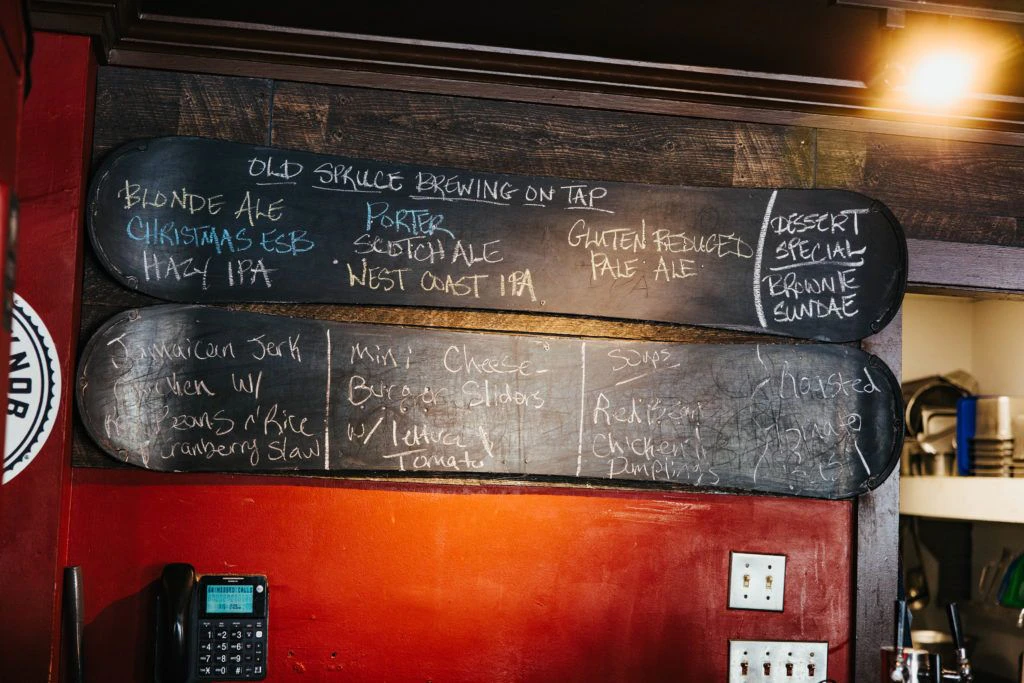 OLD SPRUCE BREWING ON TAP
BLONDE ALE
CHRISTMAS ESB
HAZY IPA
PORTER
SCOTCH ALE
WEST COAST IPA
GLUTEN REDUCED
PALE ALE
DESSERT
SPECIAL
BROWNIE
SUNDAE
Jamaican Jerk
Chicken w/
Beans n' Rice
Cranberry Slaw
Mini Cheese-
Burger Sliders
w/ lettuce
Tomato
Soups
Red Bean
Chicken
Dumplings
Roasted
Tomato